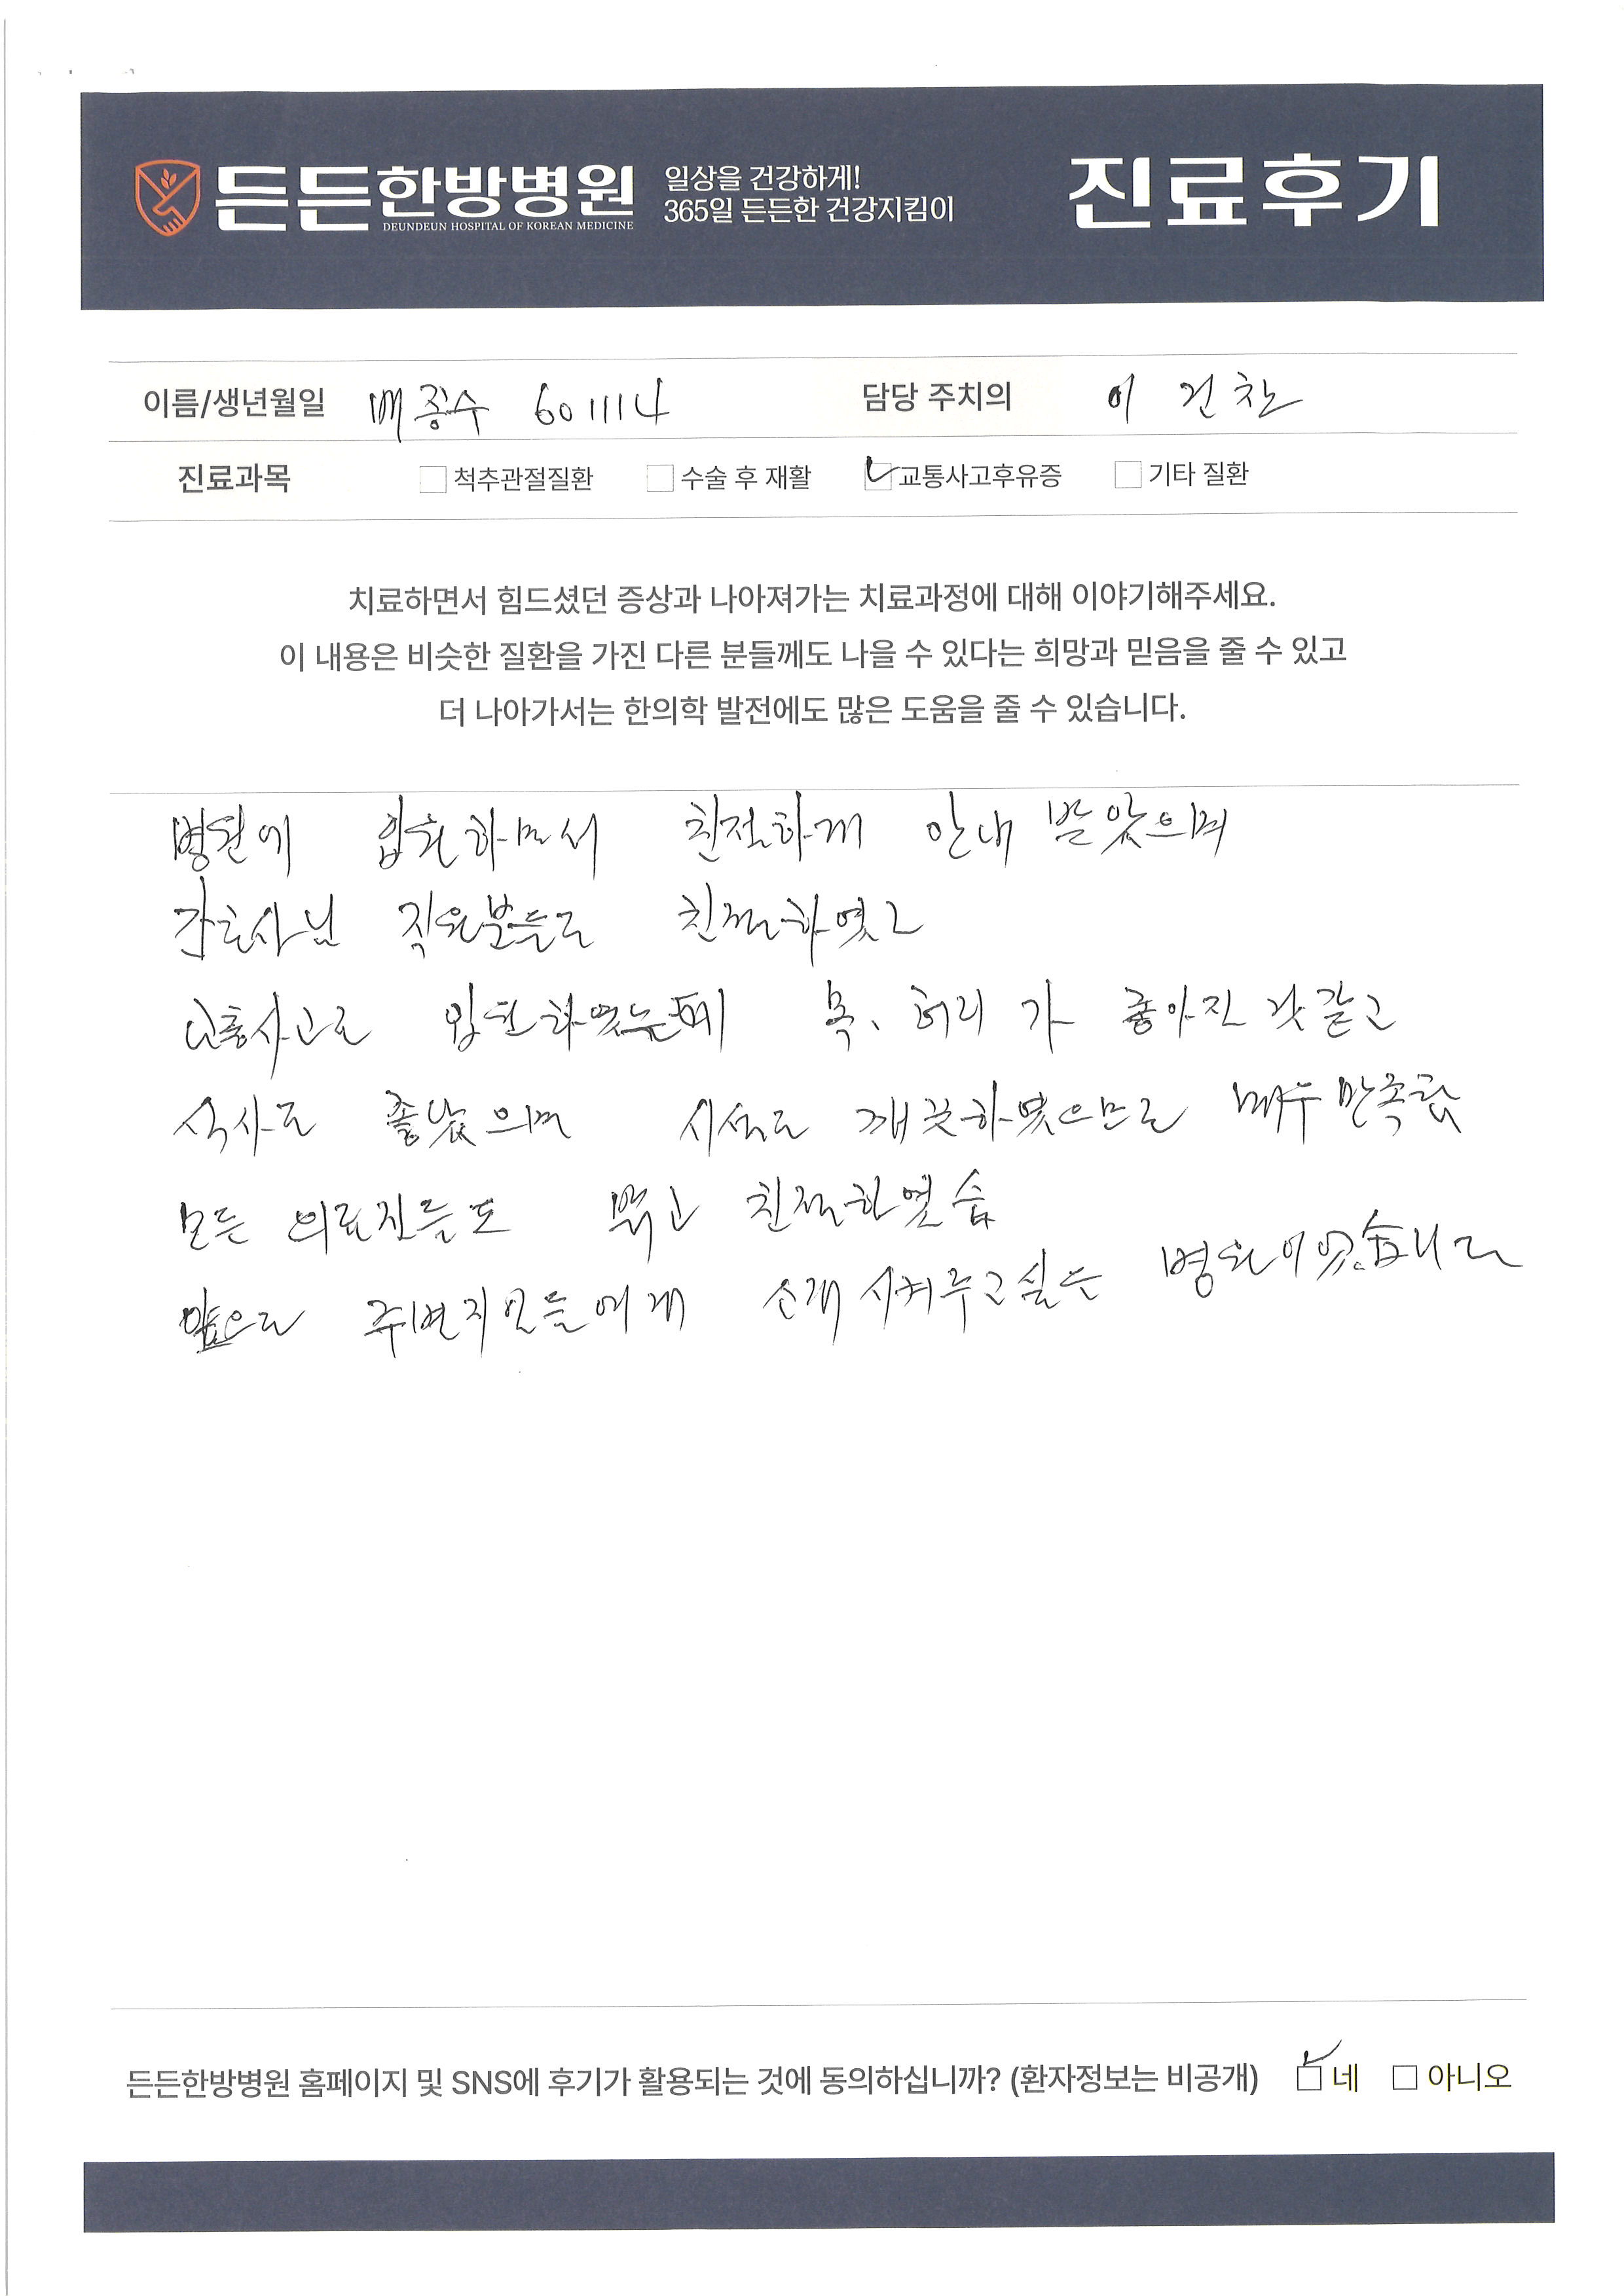 든든한방병원
DEUNDEUN HOSPITAL OF KOREAN MEDICINE
일상을 건강하게!
365일 든든한 건강지킴이
진료후기
이름/생년월일 배종수 601114 담당 주치의 이건찬
진료과목 척추관절질환 수술 후 재활 교통사고후유증 기타 질환
치료하면서 힘드셨던 증상과 나아져가는 치료과정에 대해 이야기해주세요.
이 내용은 비슷한 질환을 가진 다른 분들께도 나을 수 있다는 희망과 믿음을 줄 수 있고
더 나아가서는 한의학 발전에도 많은 도움을 줄 수 있습니다.
병원에 입원하면서 친절하게 안내 받았으며
간호사님 직원분들도 친절하였고
교통사고로 입원하였는데 목, 허리가 좋아진 것 같고
식사도 좋았으며 시설도 깨끗하였으므로 매우 만족함
모든 의료진들도 친절하였슴
앞으로 주변지인들에게 소개시켜주고싶은 병원이었습니다
든든한방병원 홈페이지 및 SNS에 후기가 활용되는 것에 동의하십니까? (환자정보는 비공개) 네 아니오